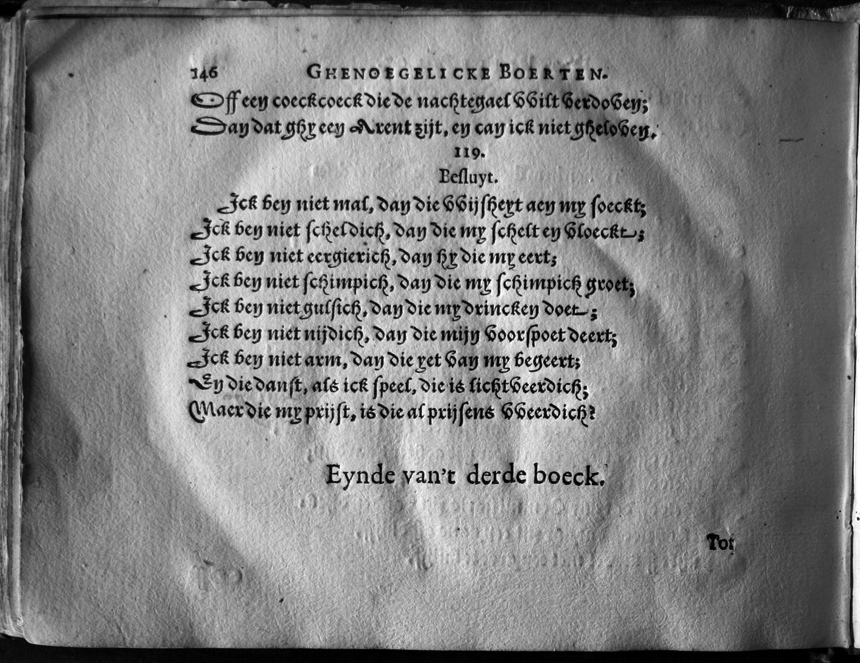 146 GHENOEGELICKE BOERTEN.
Off een coeckcoeck die de nachtegael wilt verdoven;
Dan dat ghy een Arent zijt, en can ick niet gheloven.
119.
Besluyt.
Ick ben niet mal, dan die Wijsheyt aen my soeckt;
Ick ben niet scheldich, dan die my schelt en vloeckt;
Ick ben niet eergierich, dan hy die my eert;
Ick ben niet schimpich, dan die my schimpich groet;
Ick ben niet gulsich, dan die my drincken doet;
Ick ben niet nijdich, dan die mijn voorspoet deert;
Ick ben niet arm, dan die yet van my begeert;
En die danst, als ick speel, die is lichtveerdich;
Maer die my prijst, is die al prijsens weerdich?
Eynde van't derde boeck.
Tot